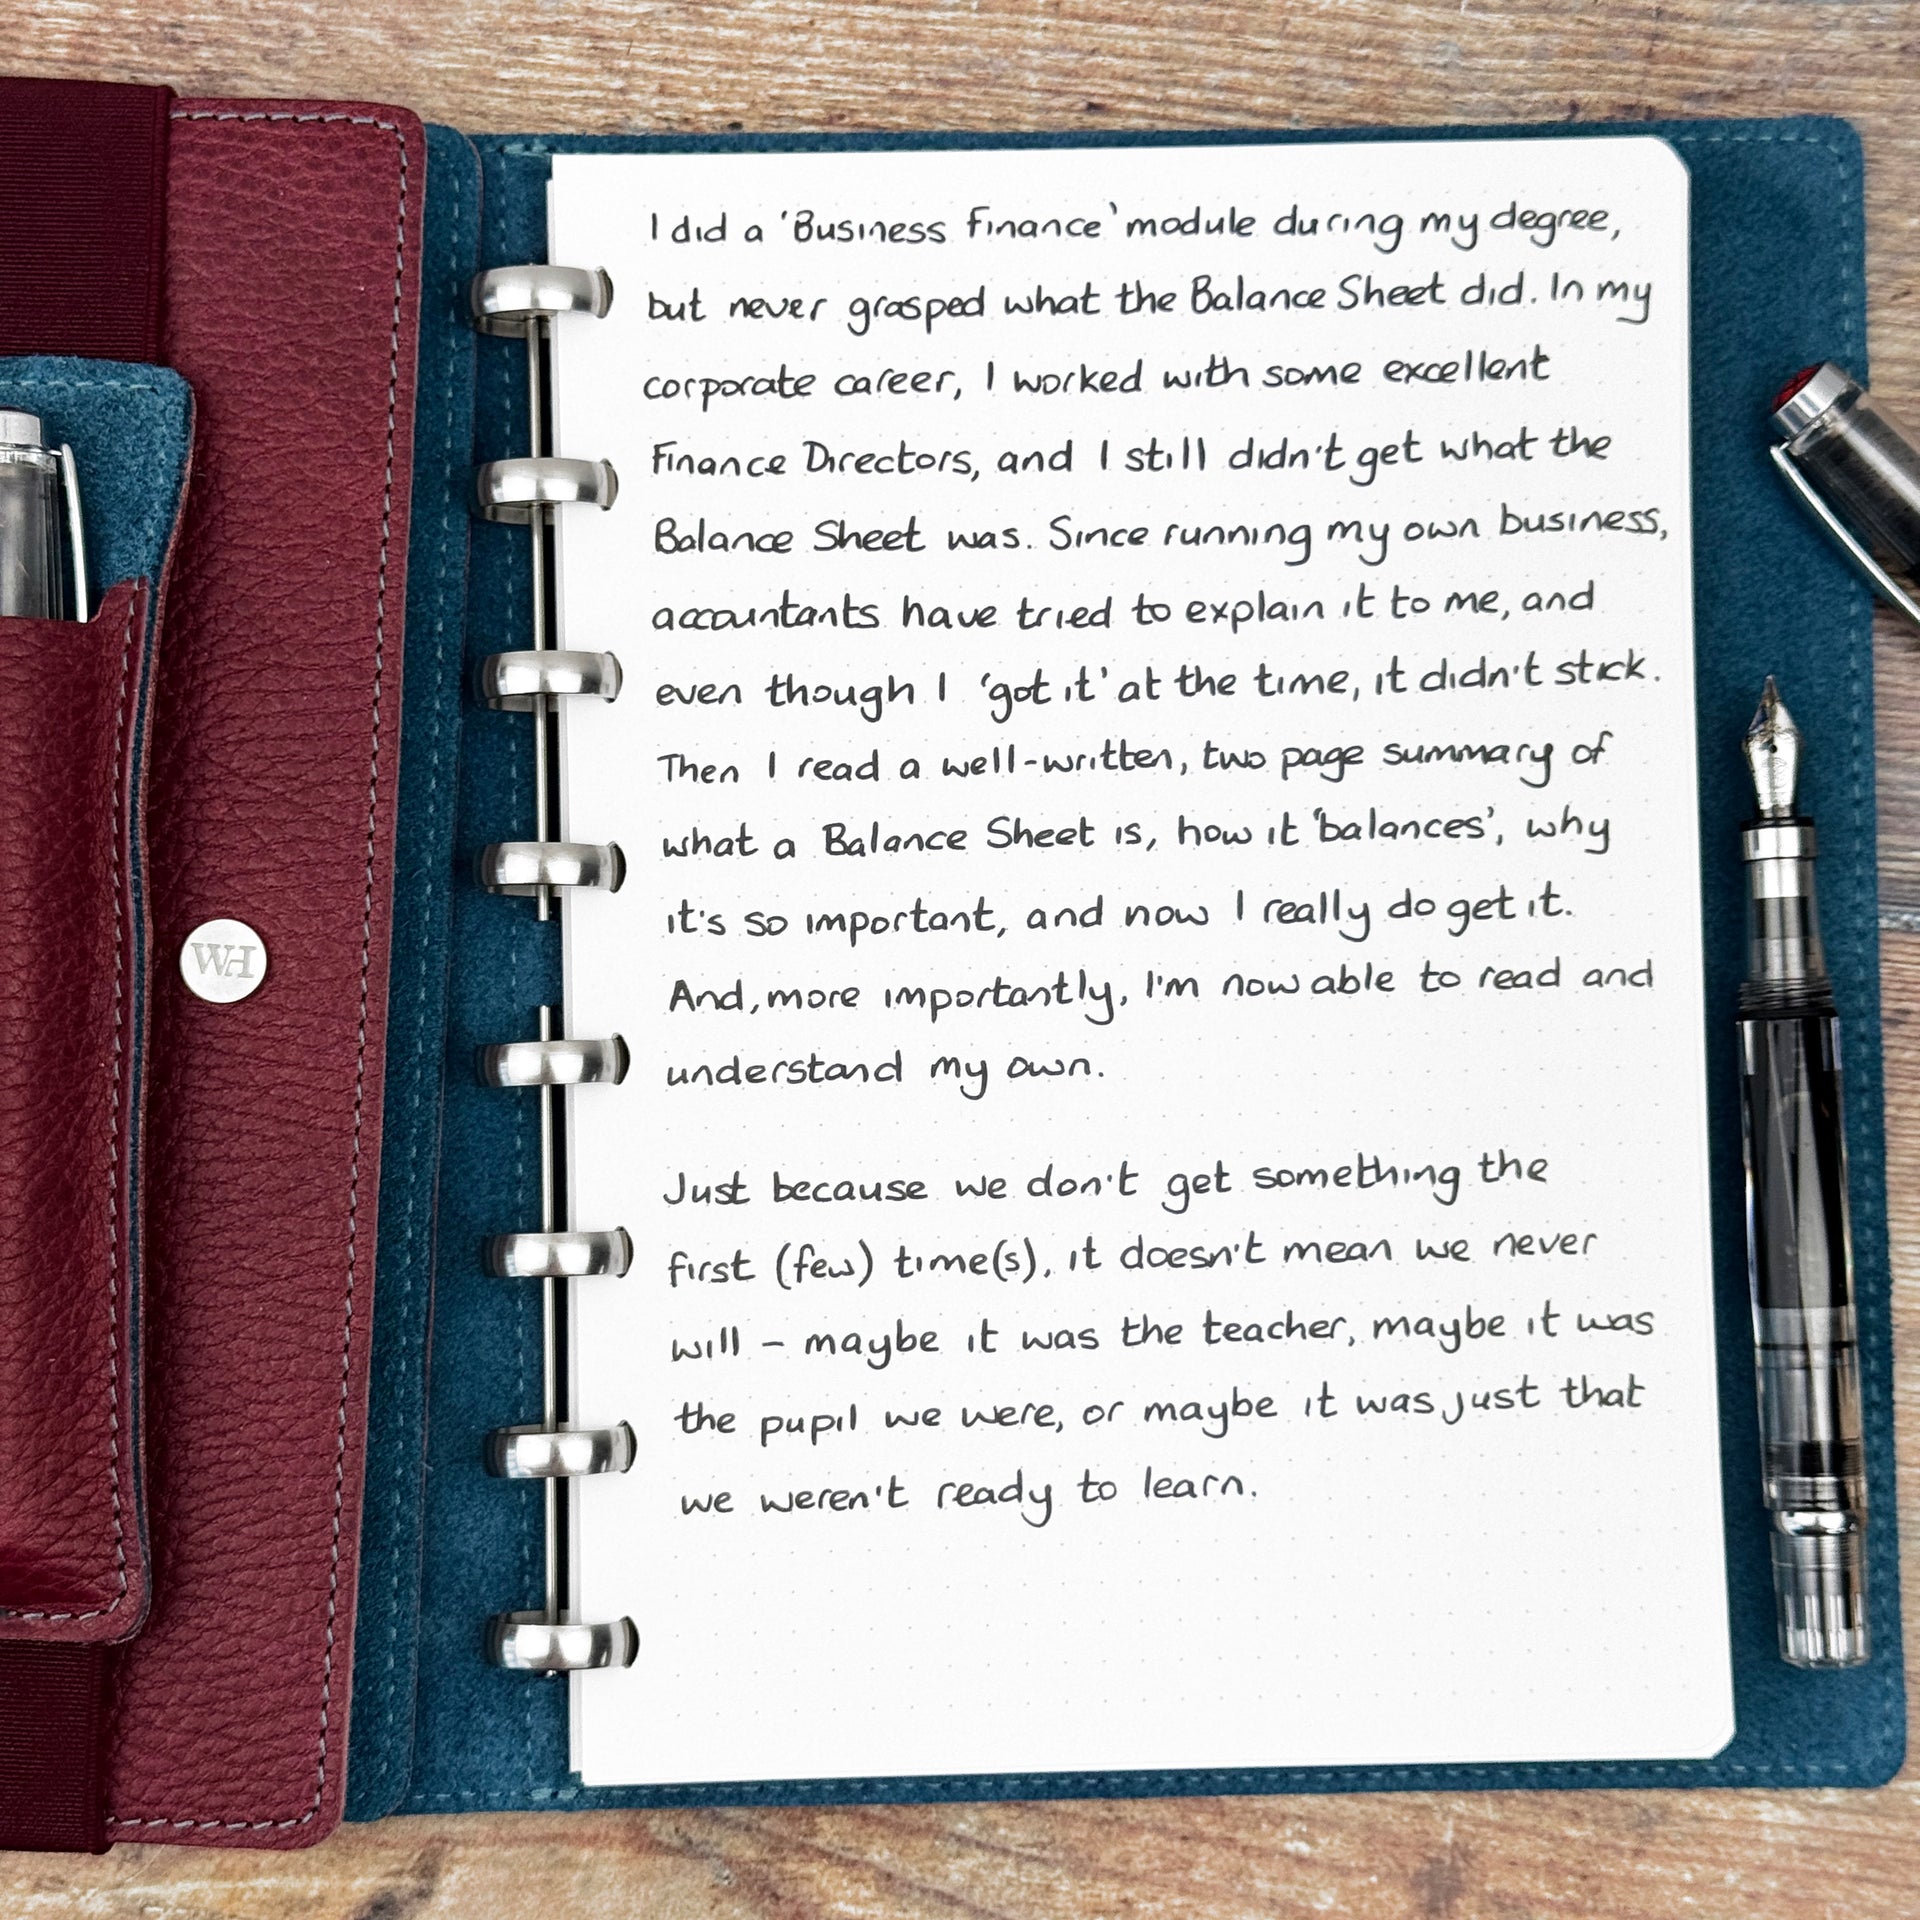 I did a 'Business Finance' module during my degree,
but never grasped what the Balance Sheet did. In my
corporate career, I worked with some excellent
Finance Directors, and I still didn't get what the
Balance Sheet was. Since running my own business,
accountants have tried to explain it to me, and
even though I 'got it' at the time, it didn't stick.
Then I read a well-written, two page summary of
what a Balance Sheet is, how it 'balances', why
it's so important, and now I really do get it.
And, more importantly, I'm now able to read and
understand my own.
Just because we don't get something the
first (few) time(s), it doesn't mean we never
will - maybe it was the teacher, maybe it was
the pupil we were, or maybe it was just that
we weren't ready to learn.
WH